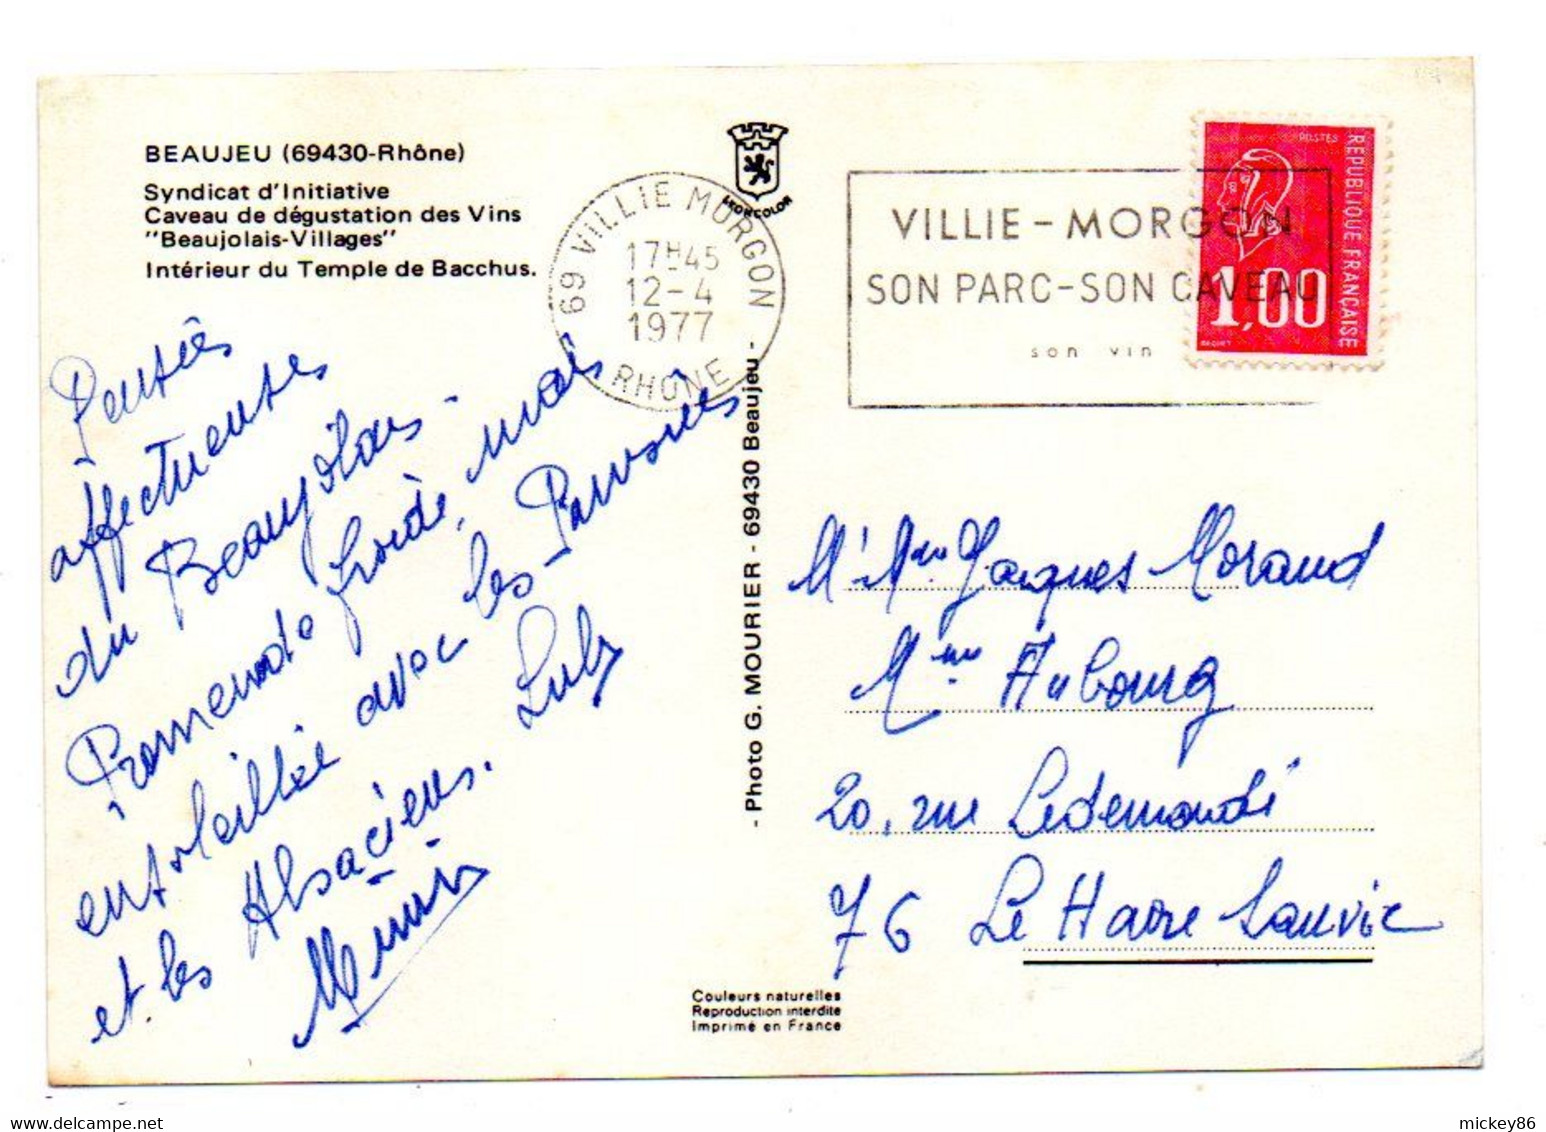 BEAUJEU (69430-Rhône)
Syndicat d'Initiative
Caveau de dégustation des Vins
"Beaujolais-Villages"
Intérieur du Temple de Bacchus.
LYONCOLOR
69 VILLIE MORGON
17H45
12-4
1977
RHONE
VILLIE - MORGON
SON PARC-SON CAVEAU
son vin
POSTES
REPUBLIQUE FRANÇAISE
1,00
BEQUET
Pensées
affectueuses
du Beaujolais.
Promenade froide, mais
ensoleillée avec les
et les Alsaciens.
- Photo G. MOURIER - 69430 Beaujeu -
Mr Mme Jacques Morand
Mme Aubourg
20, rue
76 Le Havre Sanvic
Couleurs naturelles
Reproduction interdite
Imprimé en France
mickey86